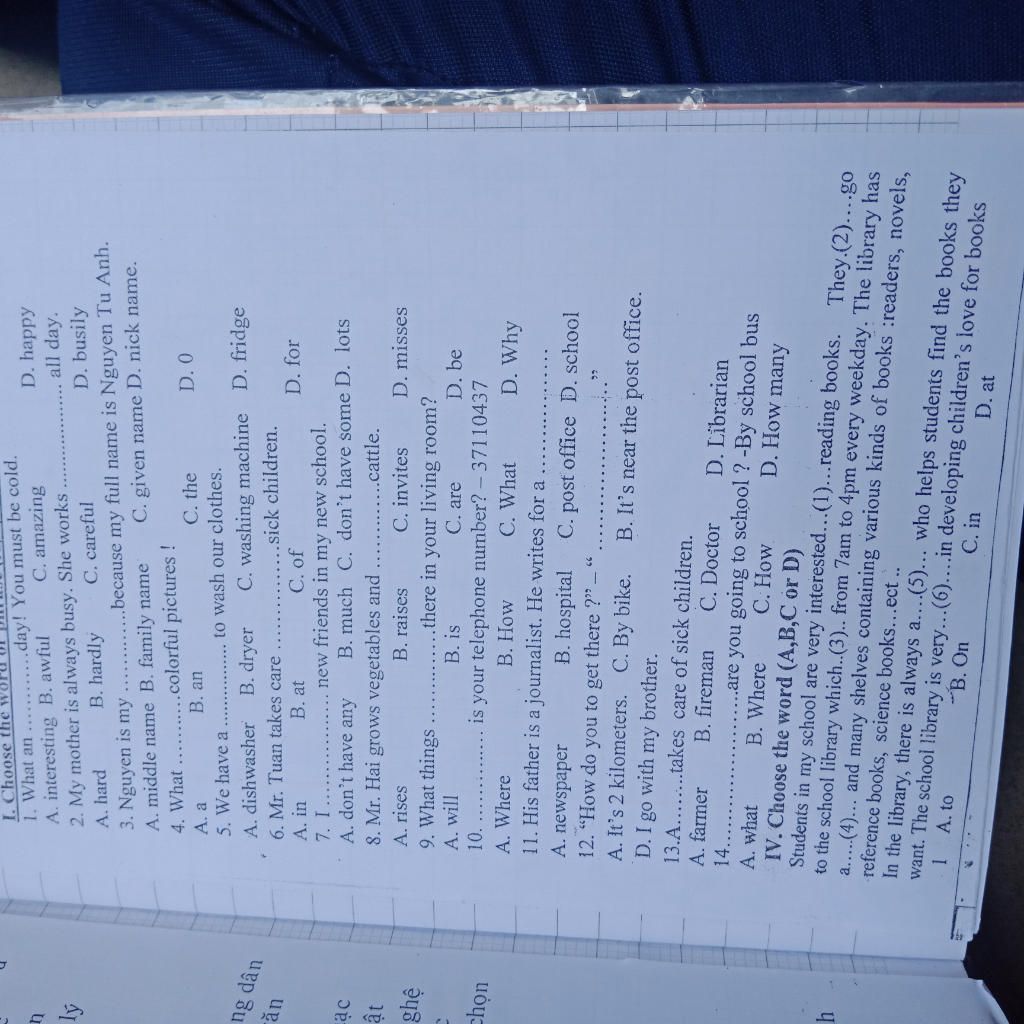 I. Choose the word or
1. What an ................day! You must be cold.
A. interesting B. awful C. amazing D. happy
2. My mother is always busy. She works ................ all day.
A. hard B. hardly C. careful D. busily
3. Nguyen is my ...............because my full name is Nguyen Tu Anh.
A. middle name B. family name C. given name D. nick name.
4. What .............colorful pictures !
A. a B. an C. the D. 0
5. We have a ................ to wash our clothes.
A. dishwasher B. dryer C. washing machine D. fridge
6. Mr. Tuan takes care ....................sick children.
A. in B. at C. of D. for
7. I ................ new friends in my new school.
A. don't have any B. much C. don't have some D. lots
8. Mr. Hai grows vegetables and .................cattle.
A. rises B. raises C. invites D. misses
9. What things .................there in your living room?
A. will B. is C. are D. be
10. ............... is your telephone number? – 37110437
A. Where B. How C. What D. Why
11. His father is a journalist. He writes for a ....................
A. newspaper B. hospital C. post office D. school
12. "How do you to get there ?" – " ............................"
A. It's 2 kilometers. C. By bike. B. It's near the post office.
D. I go with my brother.
13.A..........takes care of sick children.
A. farmer B. fireman C. Doctor D. Librarian
14..........................are you going to school ? -By school bus
A. what B. Where C. How D. How many
IV. Choose the word (A,B,C or D)
Students in my school are very interested...(1)...reading books. They.(2)....go
to the school library which..(3).. from 7am to 4pm every weekday. The library has
a.....(4)... and many shelves containing various kinds of books :readers, novels,
reference books, science books...ect...
In the library, there is always a....(5)... who helps students find the books they
want. The school library is very...(6)....in developing children's love for books
1 A. to B. On C. in D. at
ng dân
lý
ăn
ật
ghệ
chọn